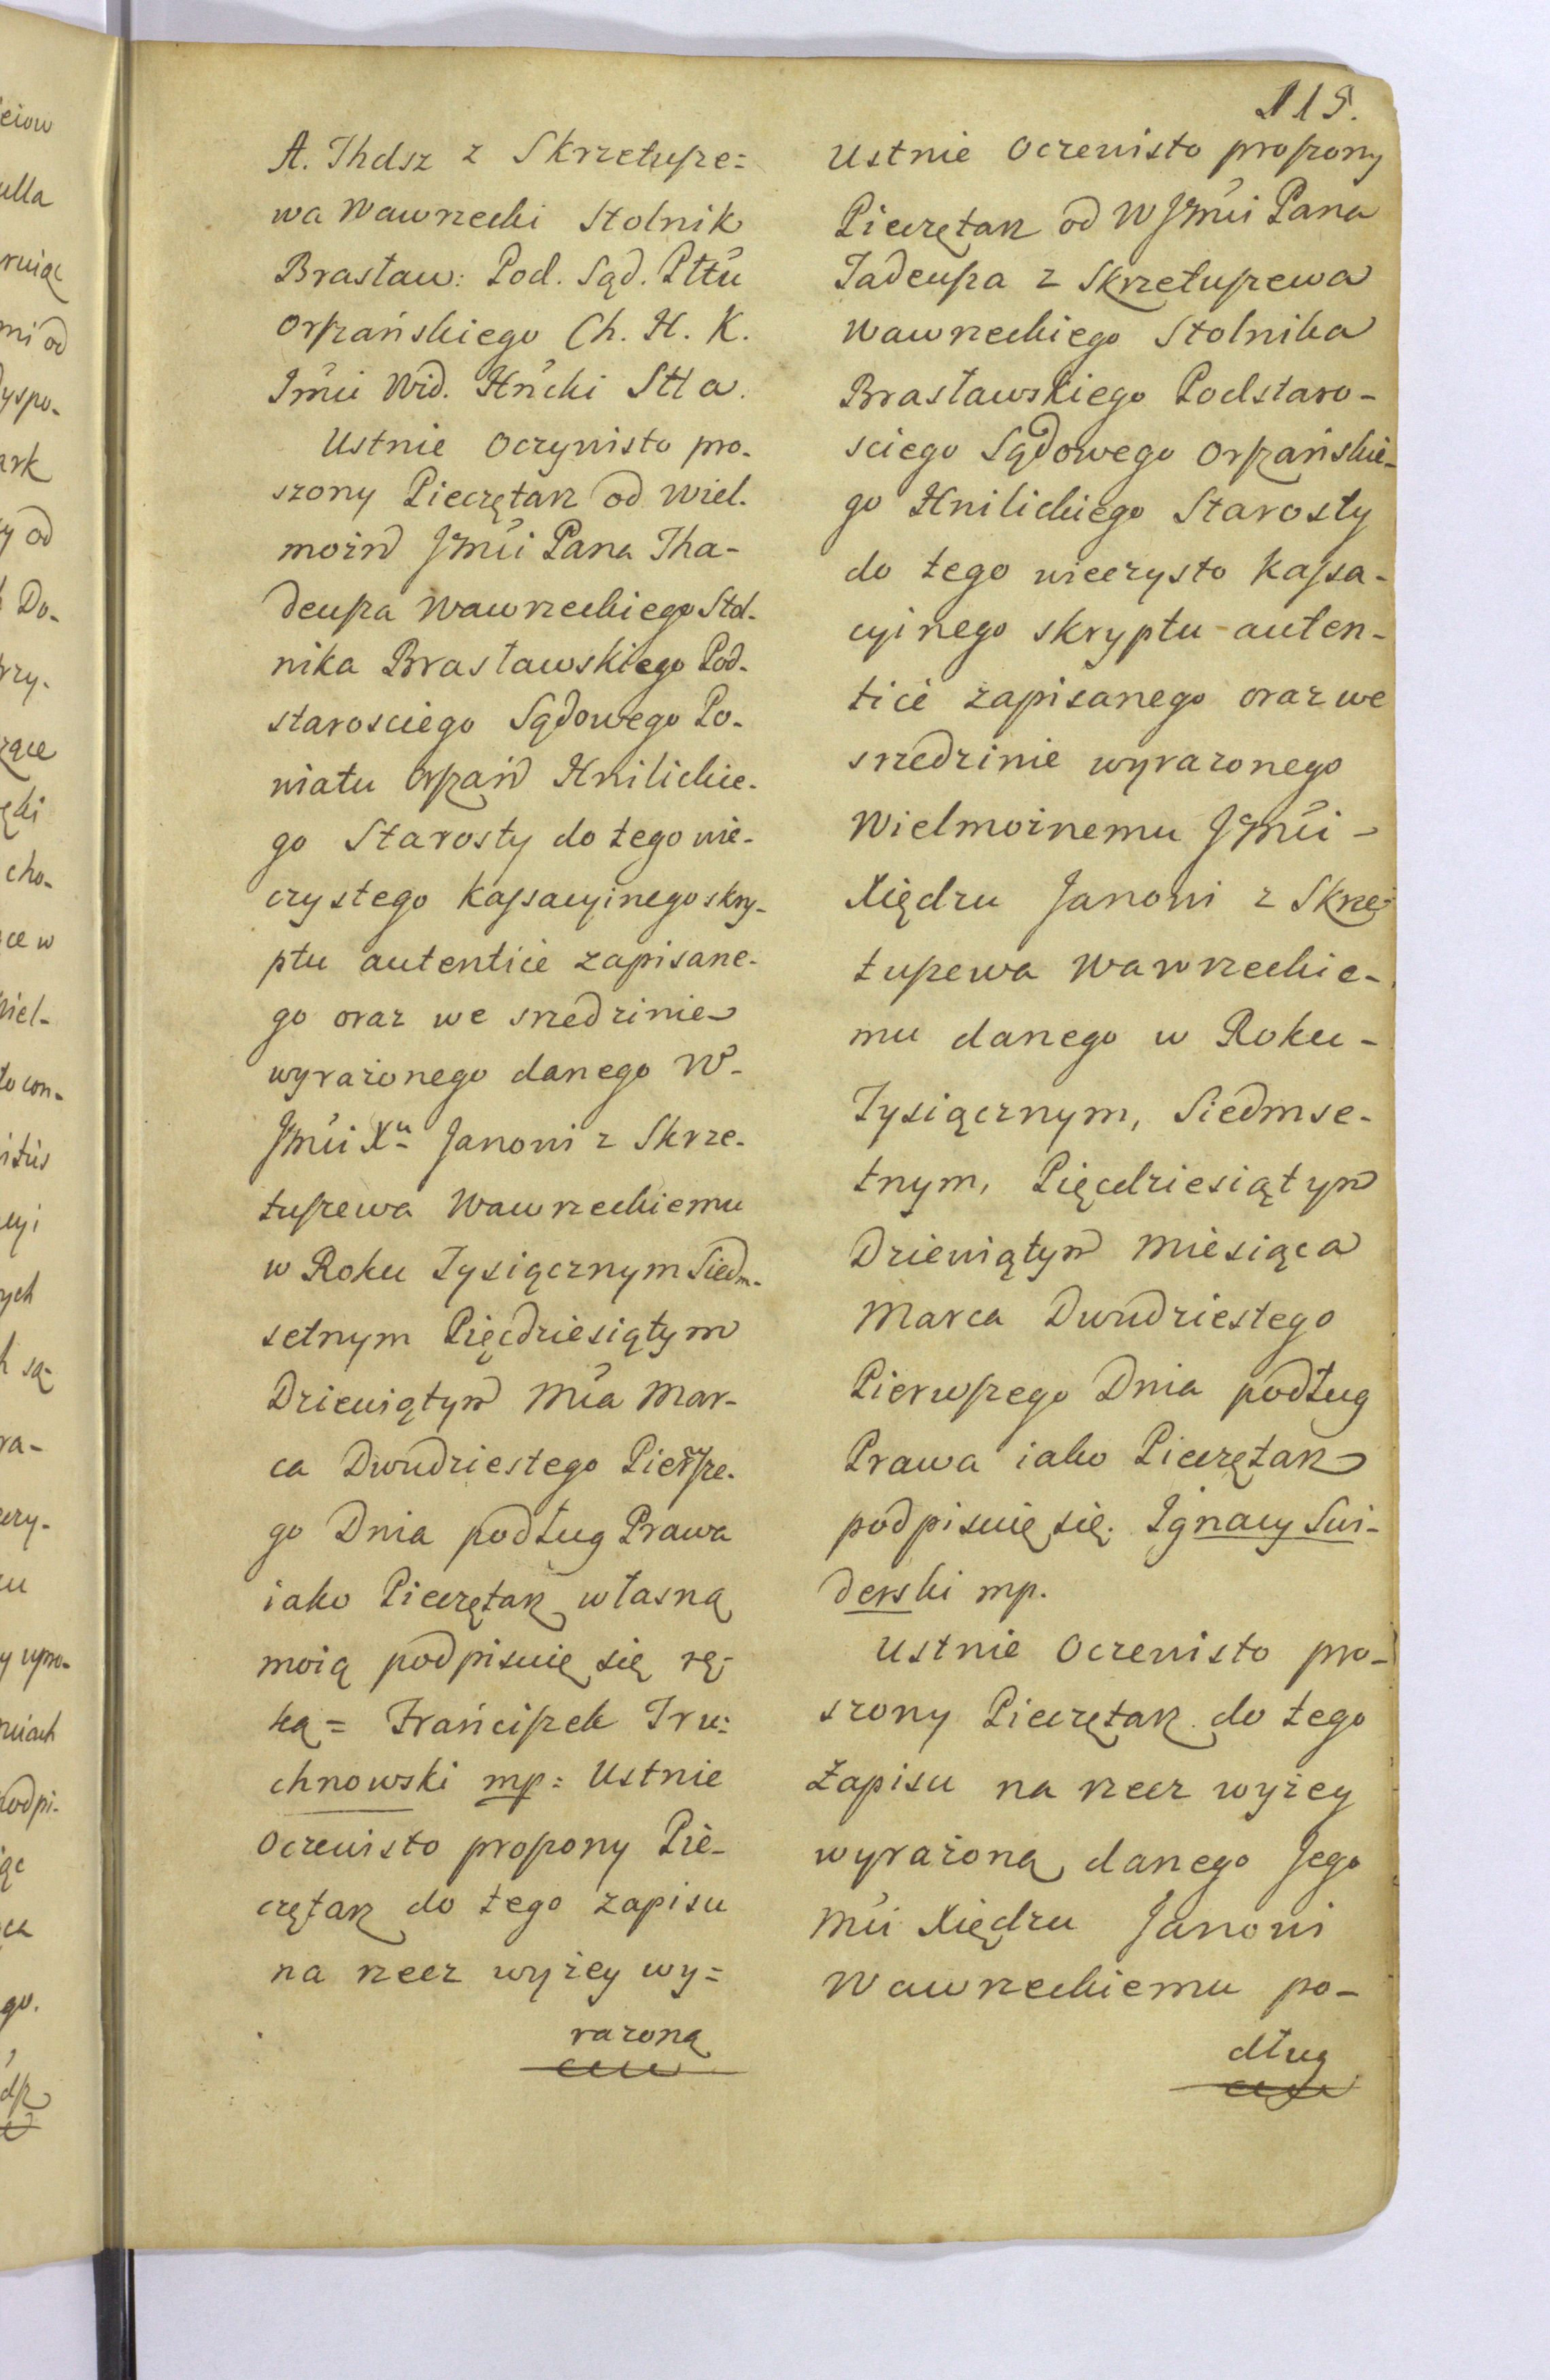 115.
A. Thdsz z Skrzetusze=
wa Wawrzecki Stolnik
Brasław: Pod. Sąd. Pttu
Orszańskiego Ch. H. K.
Jmci Wid. Hncki Stta.
Ustnie Oczywisto pro-
szony Pieczętarz od Wiel.
możn Jmci Pana Tha-
deusza Wawrzeckiego Stol-
nika Brasławskiego Pod-
starosciego Sądowego Po-
wiatu Orszań Hnilickie-
go Starosty do tego wie-
czystego Kassacyinego skry-
ptu autentice zapisane-
go oraz we srzedzinie
wyrażonego danego W-
Jmci Xu Janowi z Skrze-
tuszewa Wawrzeckiemu
w Roku Tysiącznym Siedm-
setnym Pięcdziesiątym
Dziewiątym Mca Mar-
ca Dwudziestego Pierwsze-
go Dnia podług Prawa
iako Pieczętarz własną
moią podpisuię się rę-
ką = Franciszek Tru=
chnowski mp = Ustnie
Oczewisto proszony Pie-
czętarz do tego zapisu
na rzecz wyżey wy=
rażoną
Ustnie Oczewisto proszony
Pieczętarz od W Jmci Pana
Tadeusza z Skrzetuszewa
Wawrzeckiego Stolnika
Brasławskiego Podstaro-
sciego Sądowego Orszańskie-
go Hnilickiego Starosty
do tego wieczysto Kassa-
cyinego skryptu auten-
tice zapisanego oraz we
srzedzinie wyrażonego
Wielmożnemu Jmci
Xiędzu Janowi z Skrze-
tuszewa Wawrzeckie-
mu danego w Roku -
Tysiącznym, Siedmse-
tnym, Pięcdziesiątym
Dziewiątym Miesiąca
Marca Dwudziestego
Pierwszego Dnia podług
Prawa iako Pieczętarz
podpisuię się. Ignacy Swi-
derski mp.
Ustnie Oczewisto pro-
szony Pieczętarz do tego
Zapisu na rzecz wyżey
wyrażoną danego Jego
Mci Xiędzu Janowi
Wawrzeckiemu po-
dług